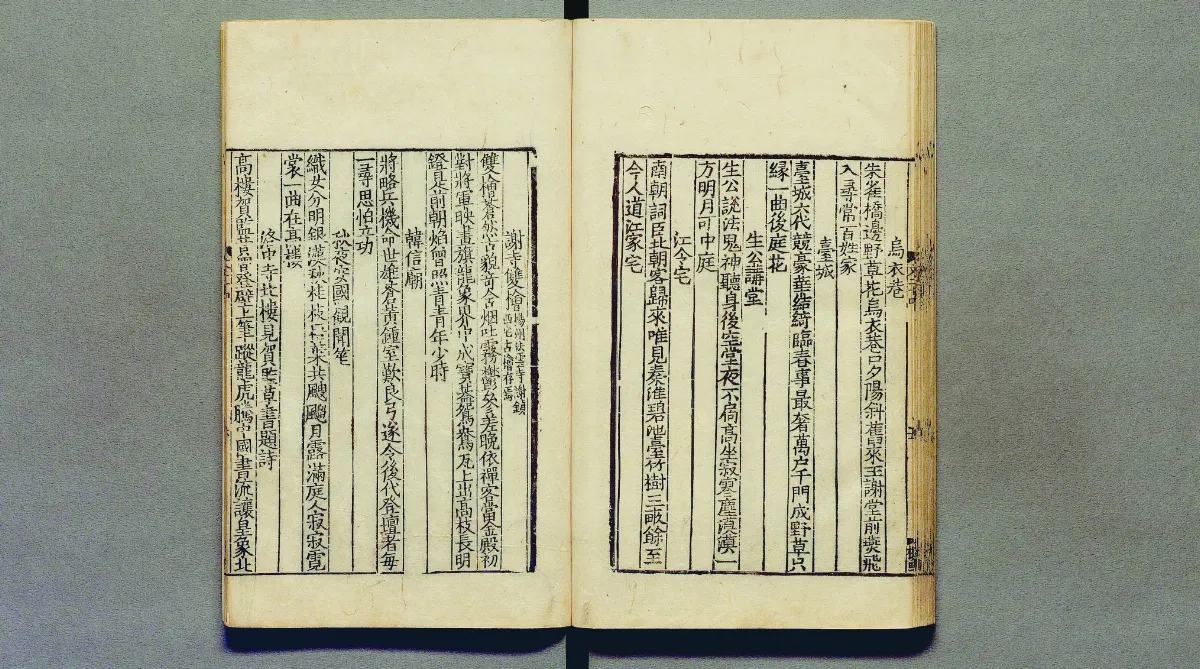 烏衣巷
朱雀橋邊野草花烏衣巷口夕陽斜舊來王謝堂前燕飛
入尋常百姓家
臺城
臺城六代競豪華結綺臨春事最奢萬户千門成野草只
縁一曲後庭花
生公講堂
生公説法鬼神聽身後空堂夜不扃高坐寂寥塵漠漠一
方明月可中庭
江令宅
南朝詞臣北朝客歸來唯見秦淮碧池臺竹樹三畝餘至
今人道江家宅
謝寺雙檜揚州法雲寺謝鎮
西宅古檜存焉
雙檜蒼然古貌奇含烟吐霧鬱參差晚依禪客當金殿初
對將軍映畫旗龍象界中成寶蓋鴛鴦瓦上出高枝長明
鐙是前朝焰曾照青青年少時
韓信廟
將略兵機命世雄蒼黃鍾室歎良弓遂令後代登壇者每
一尋思怕立功
秋夜安國觀聞笙
織女分明銀漢秋桂枝梧葉共颼飀月露滿庭人寂寂霓
裳一曲在高樓
洛中寺北樓見賀監草書題詩
高樓賀監昔曾登壁上筆蹤龍虎騰中國書流讓皇象北